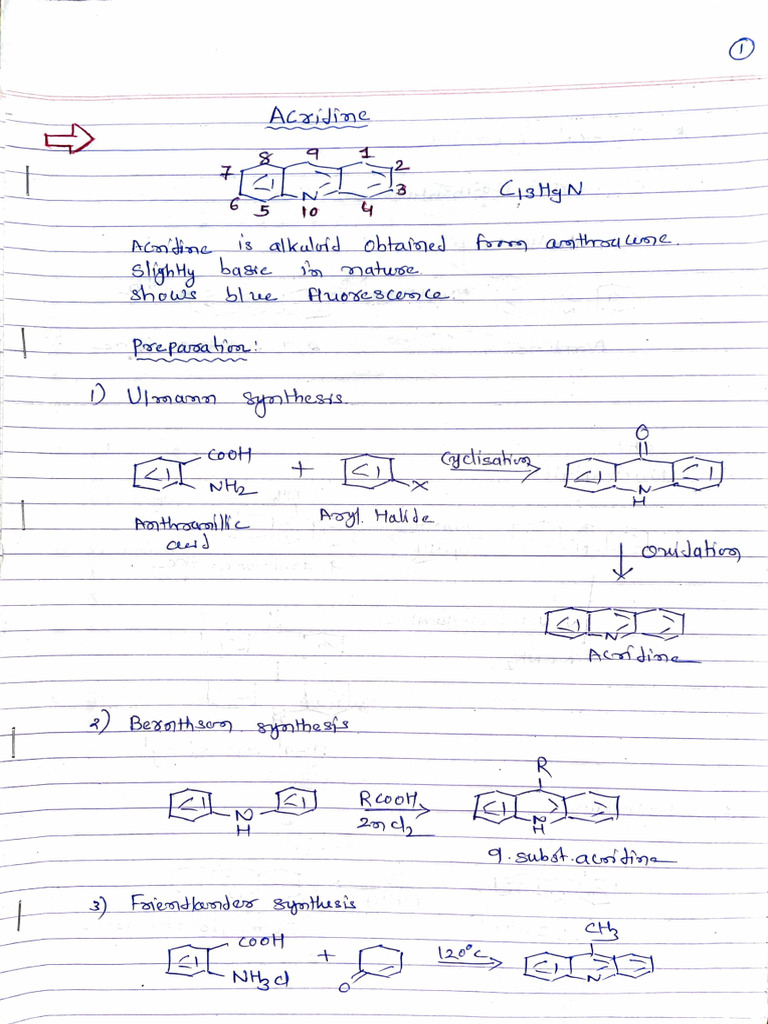 1
Acridine
8 9 1
7 2
N 3
6 5 10 4
C13H9N
Acridine is alkaloid obtained from anthracene.
Slightly basic in nature
shows blue fluorescence.
Preparation:
1) Ulmann synthesis.
COOH
NH2
+
X
Cyclisation
O
N
H
Anthranillic
acid
Aryl Halide
Oxidation
N
Acridine
2) Bernthsen synthesis
N
H
RCOOH
ZnCl2
R
N
H
9. subst. acridine
3) Friendlander synthesis
COOH
NH3Cl
+
O
120°C
CH3
N